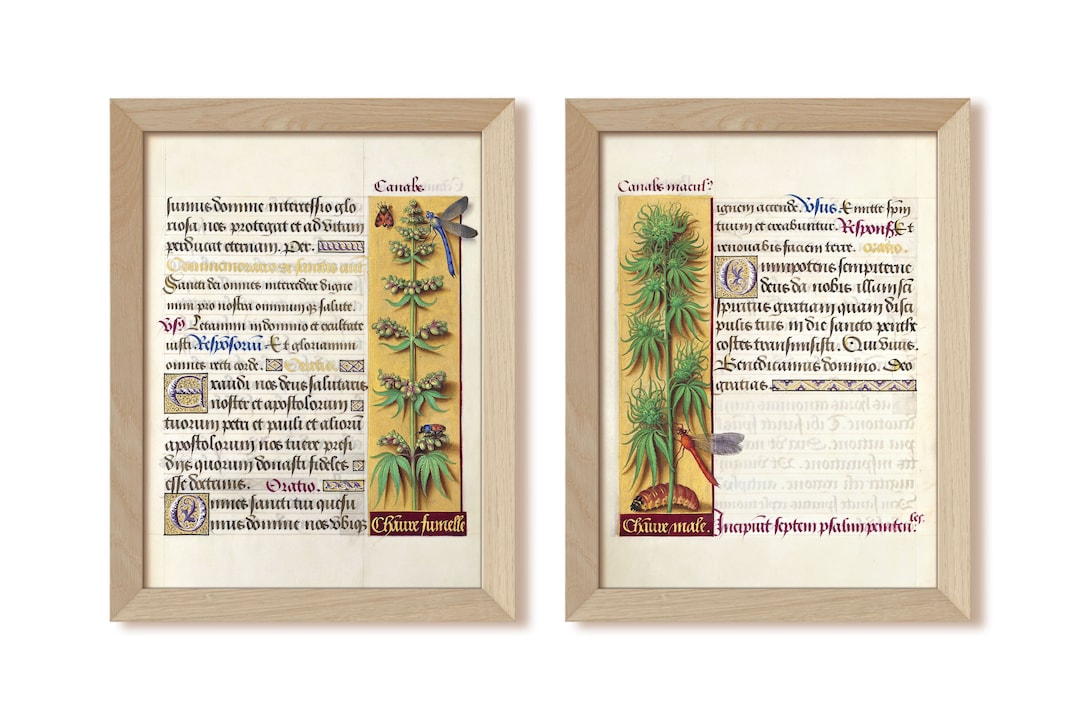 Canabe.
sumus domine intercessio glo
riosa nos protegat et ad vitam
perducat eternam. Per.
Sancti dei omnes intercedere digne
mini pro nostra omnium qz salute.
Vsz Letamini in domino et exultate
iusti. Responsoriū. Et gloriamini
omnes recti corde. Oratio.
Exaudi nos deus salutaris
noster et apostolorum
tuorum petri et pauli et aliorū
apostolorum nos tuere presi
diis quorum donasti fideles
esse doctrinis. Oratio.
Omnes sancti tui quesu
mus domine nos vbiqz
Chāure fumelle
Canabe mascul?
ignem accende. Vsus. Emitte spm
tuum et creabuntur. Respons. Et
renovabis faciem terre. oratio.
Omnipotens sempiterne
deus da nobis illam sctī
spiritus gratiam quam disci
pulis tuis in die sancto penthe
costes transmisisti. Qui vivis.
Benedicamus domino. Deo
gratias.
Chāure male.
Incipiūt septem psalmi peniten.les.